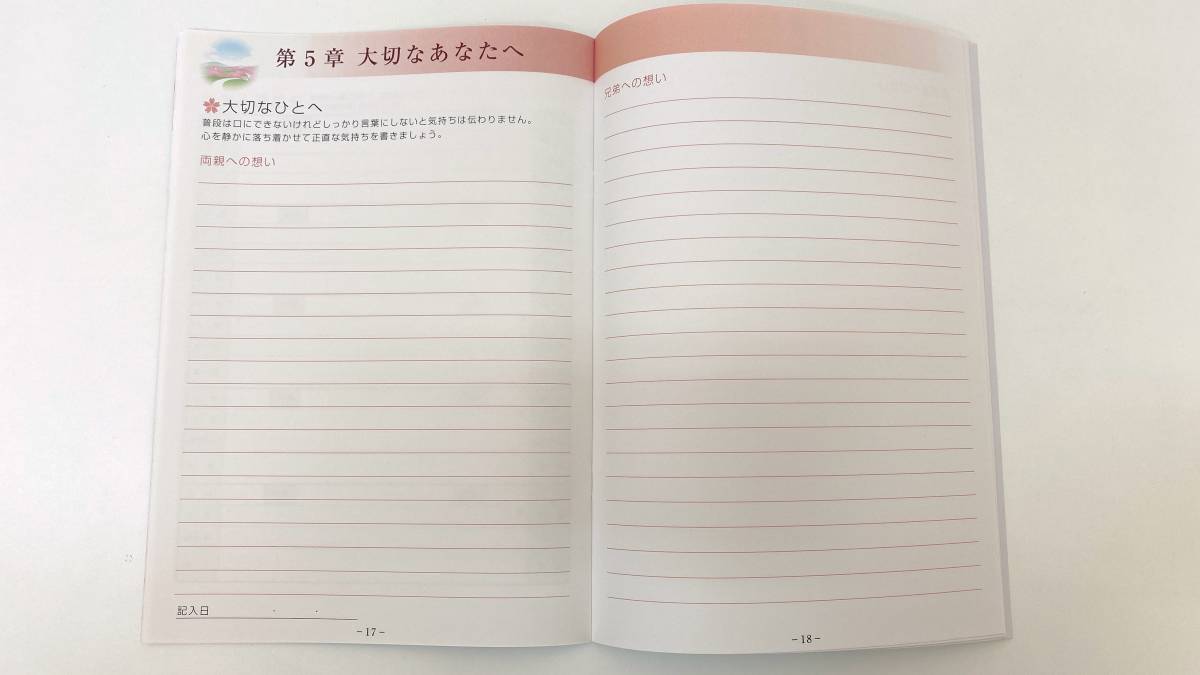 第5章 大切なあなたへ
大切なひとへ
普段は口にできないけれどしっかり言葉にしないと気持ちは伝わりません。
心を静かに落ち着かせて正直な気持ちを書きましょう。
両親への想い
記入日　　　・　　・
−17−
兄弟への想い
−18−